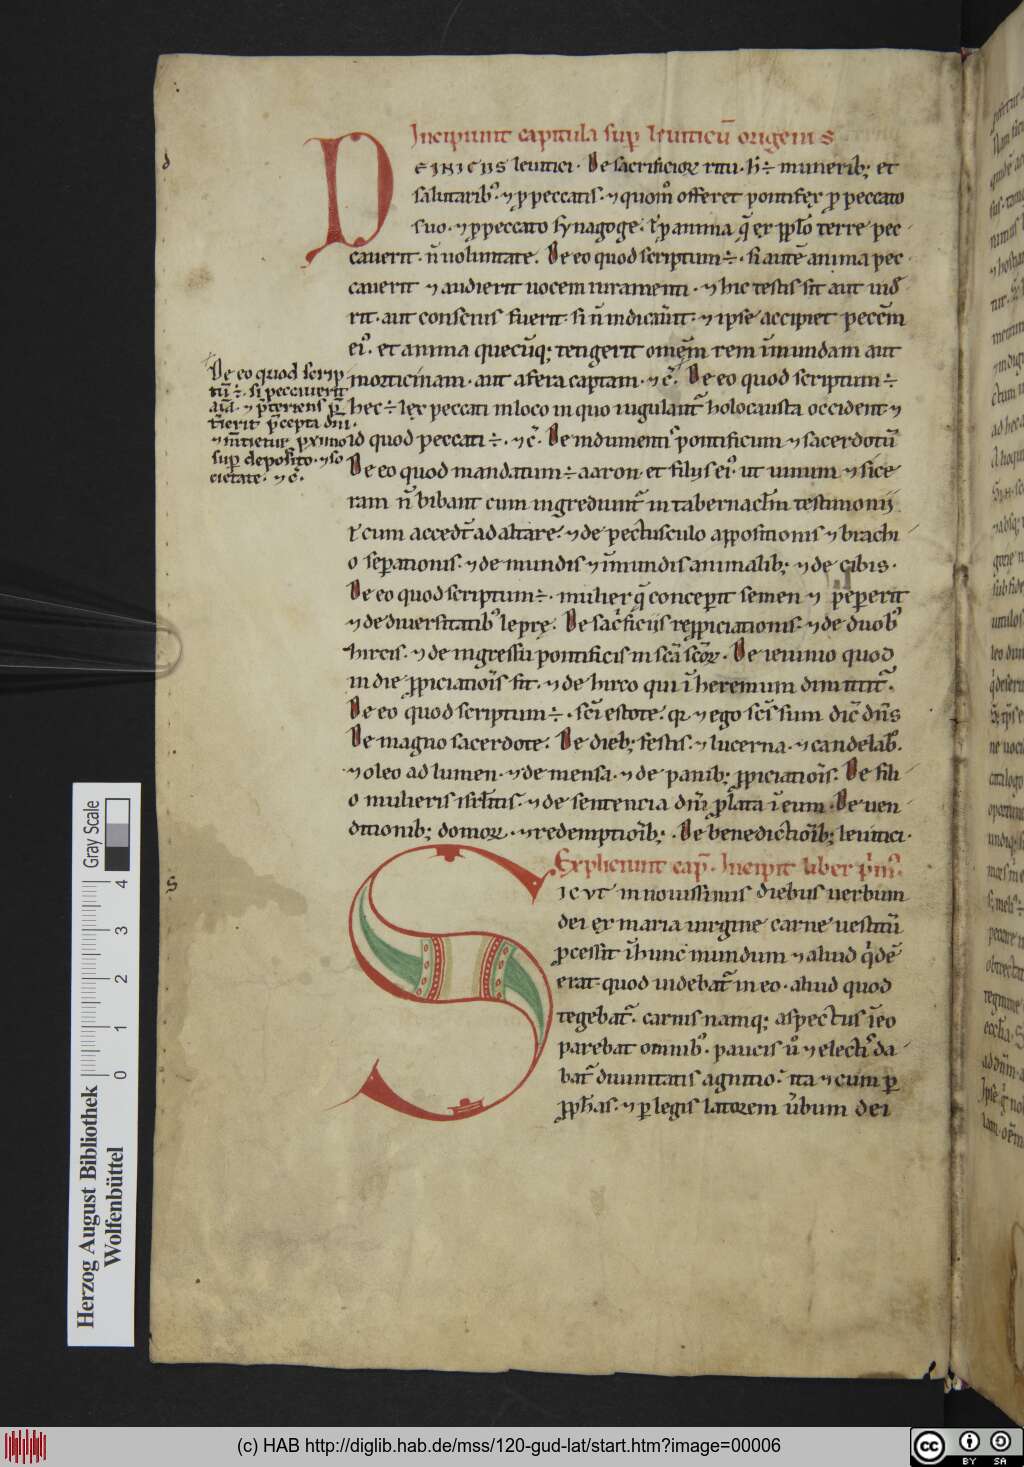 Incipiunt capitula sup̄ leuiticū origenis
D E INICIIS leuitici. De sacrificiorꝝ ritu. h̄ ÷ munerib; et
salutarib᾿. ⁊ ꝓ peccatis. ⁊ quom̄ offeret pontifex ꝓ peccato
suo. ⁊ ꝓ peccato synagoge. ł ꝓ anima q̄ ex pplo terre pec
cauerit. n̄ uoluntate. De eo quod scriptum ÷. si autē anima pec
cauerit ⁊ audierit uocem iuramenti. ⁊ hic testis sit aut uid̄
rit. aut conscius fuerit. si n̄ indicau̅it. ⁊ ipse accipiet peccm̄
ei᾿. et anima quecūq; tetigerit omēm rem īmundam aut
morticinam. aut a fera captam. ⁊ c̄. De eo quod scriptum ÷
hec ÷ lex peccati in loco in quo iugulant̄ holocausta occident ⁊
id quod peccati ÷. ⁊ c̄. De indumentis pontificum ⁊ sacerdotū
De eo quod mandatum ÷ aaron. et filiis ei᾿. ut uinum ⁊ sice
ram n̄ bibant cum ingrediunt̄ in tabernaclm̄ testimonii
ł cum accedt̄ ad altare. ⁊ de pectusculo appositionis ⁊ brachi
o sep̄ationis. ⁊ de mundis ⁊ īmundis animalib; ⁊ de cibis.
De eo quod scriptum ÷. mulier q̄ conceꝑit semen ⁊ peꝑerit
⁊ de diuersitatib᾿ leprę. De sac̄ficiis repꝓpiciationis. ⁊ de duob᾿
hircis. ⁊ de ingressu pontificis in sc̄a sc̄oꝝ. De ieiunio quod
in die ꝓpiciatiōis fit. ⁊ de hirco qui ī heremum dimittit̄.
De eo quod scriptum ÷. sc̄i estote. qꝛ ⁊ ego sc̄s sum dic̄ dn̄s
De magno sacerdote. De dieb; festis. ⁊ lucerna. ⁊ candelab᾿.
⁊ oleo ad lumen. ⁊ de mensa. ⁊ de panib; ꝓpiciatiōis. De fili
o mulieris isrl̄itis. ⁊ de sentencia dn̄i ꝓlata ī eum. De uen
ditionib; domorꝝ. ⁊ redemptiōib;. De benedictiōib; leuitici.
De eo quod scrip
tū ÷. si peccauerit
aīa. ⁊ p̄teriens p̄
t̄ierit p̄cepta dn̄i.
⁊ m̄tietur ꝓximo
sup̄ deposito. ⁊ so
cietate. ⁊ c̄.
Expliciunt cap̄. Incipit liber p̄m᾿.
S ICVT in nouissimis diebus uerbum
dei ex maria uirgine carne uestitū
ꝓcessit ī hunc mundum ⁊ aliud q̄dē
erat quod uidebat̄ in eo. aliud quod
tegebat̄. carnis namq; aspectus ī eo
parebat omnib᾿. paucis u̇ ⁊ electis da
bat̄ diuinitatis agnitio. ita ⁊ cum ꝑ
ꝓph̄as. ⁊ ꝑ legis latorem u̇bum dei
Gray Scale
4
3
2
1
0
Herzog August Bibliothek
Wolfenbüttel
(c) HAB http://diglib.hab.de/mss/120-gud-lat/start.htm?image=00006
cc BY SA